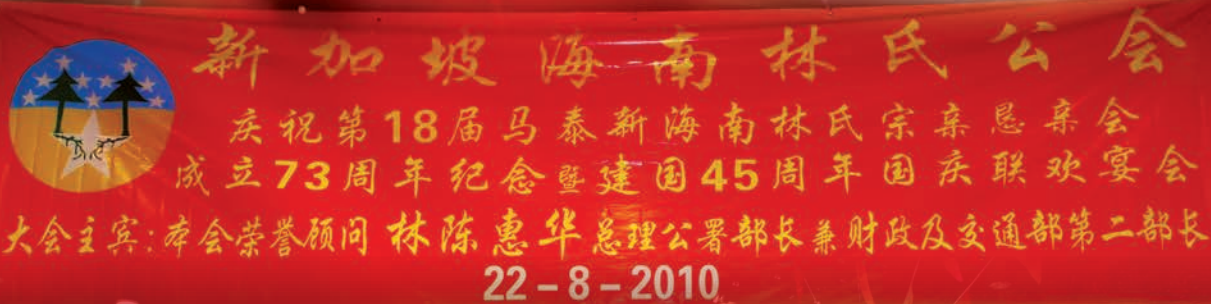 新加坡海南林氏公会
庆祝第18届马泰新海南林氏宗亲恳亲会
成立73周年纪念暨建国45周年国庆联欢宴会
大会主宾:本会荣誉顾问 林陈惠华总理公署部长兼财政及交通部第二部长
22-8-2010